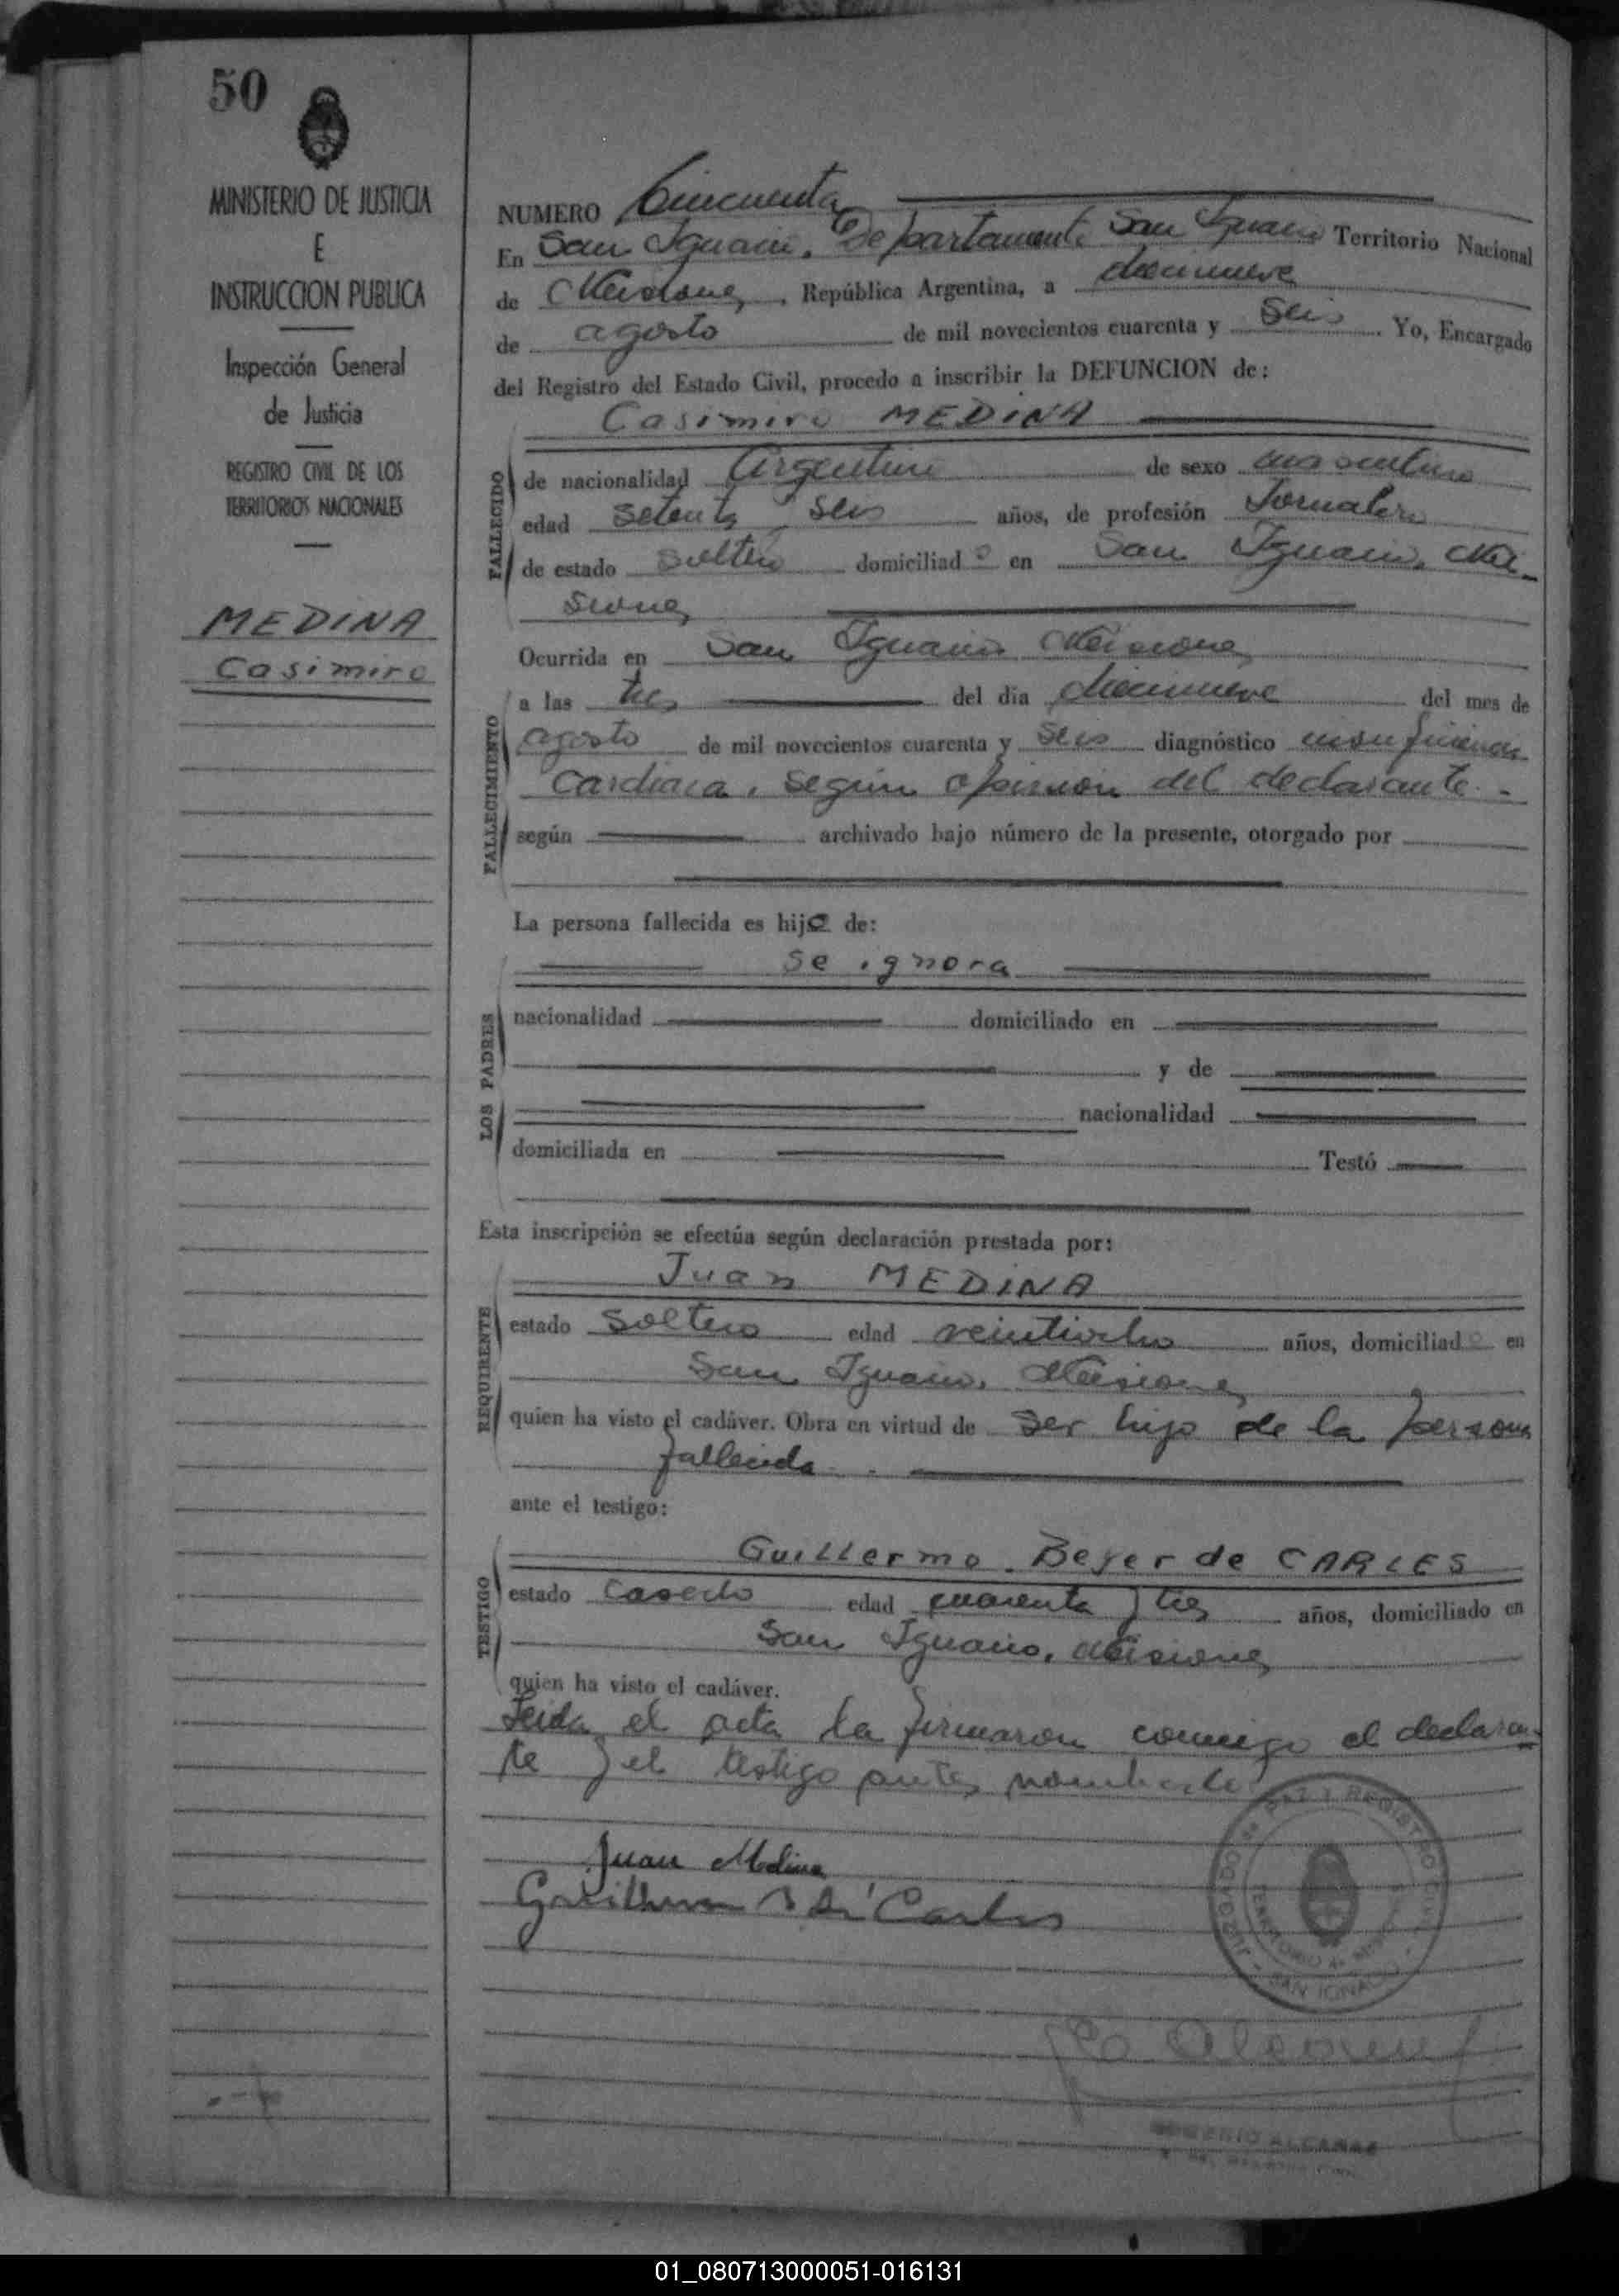 50
MINISTERIO DE JUSTICIA
E
INSTRUCCION PUBLICA
Inspección General
de Justicia
REGISTRO CIVIL DE LOS
TERRITORIOS NACIONALES
MEDINA
Casimiro
NUMERO Cincuenta
En San Ignacio, Departamento San Ignacio Territorio Nacional
de Misiones, República Argentina, a diecinueve
de agosto de mil novecientos cuarenta y seis. Yo, Encargado
del Registro del Estado Civil, procedo a inscribir la DEFUNCION de:
Casimiro MEDINA
FALLECIDO
de nacionalidad Argentino de sexo masculino
edad setenta y seis años, de profesión Jornalero
de estado soltero domiciliado en San Ignacio, Mi-
siones
FALLECIMIENTO
Ocurrida en San Ignacio Misiones
a las tres del día diecinueve del mes de
agosto de mil novecientos cuarenta y seis diagnóstico insuficiencia
cardiaca, según opinión del declarante.-
según archivado bajo número de la presente, otorgado por
La persona fallecida es hijo de:
LOS PADRES
se ignora
nacionalidad domiciliado en
y de
nacionalidad
domiciliada en Testó
Esta inscripción se efectúa según declaración prestada por:
REQUIRENTE
Juan MEDINA
estado soltero edad veintiocho años, domiciliado en
San Ignacio, Misiones
quien ha visto el cadáver. Obra en virtud de ser hijo de la persona
fallecida.
ante el testigo:
TESTIGO
Guillermo Beyer de CARLES
estado casado edad cuarenta y tres años, domiciliado en
San Ignacio, Misiones
quien ha visto el cadáver.
Leida el acta la firmaron conmigo el declaran-
te y el testigo antes nombrado
JUZGADO de PAZ Y REGISTRO CIVIL
TERRITORIO de MISIONES
SAN IGNACIO
Juan Medina
Guillermo B de Carles
ALCARAZ
01_080713000051-016131